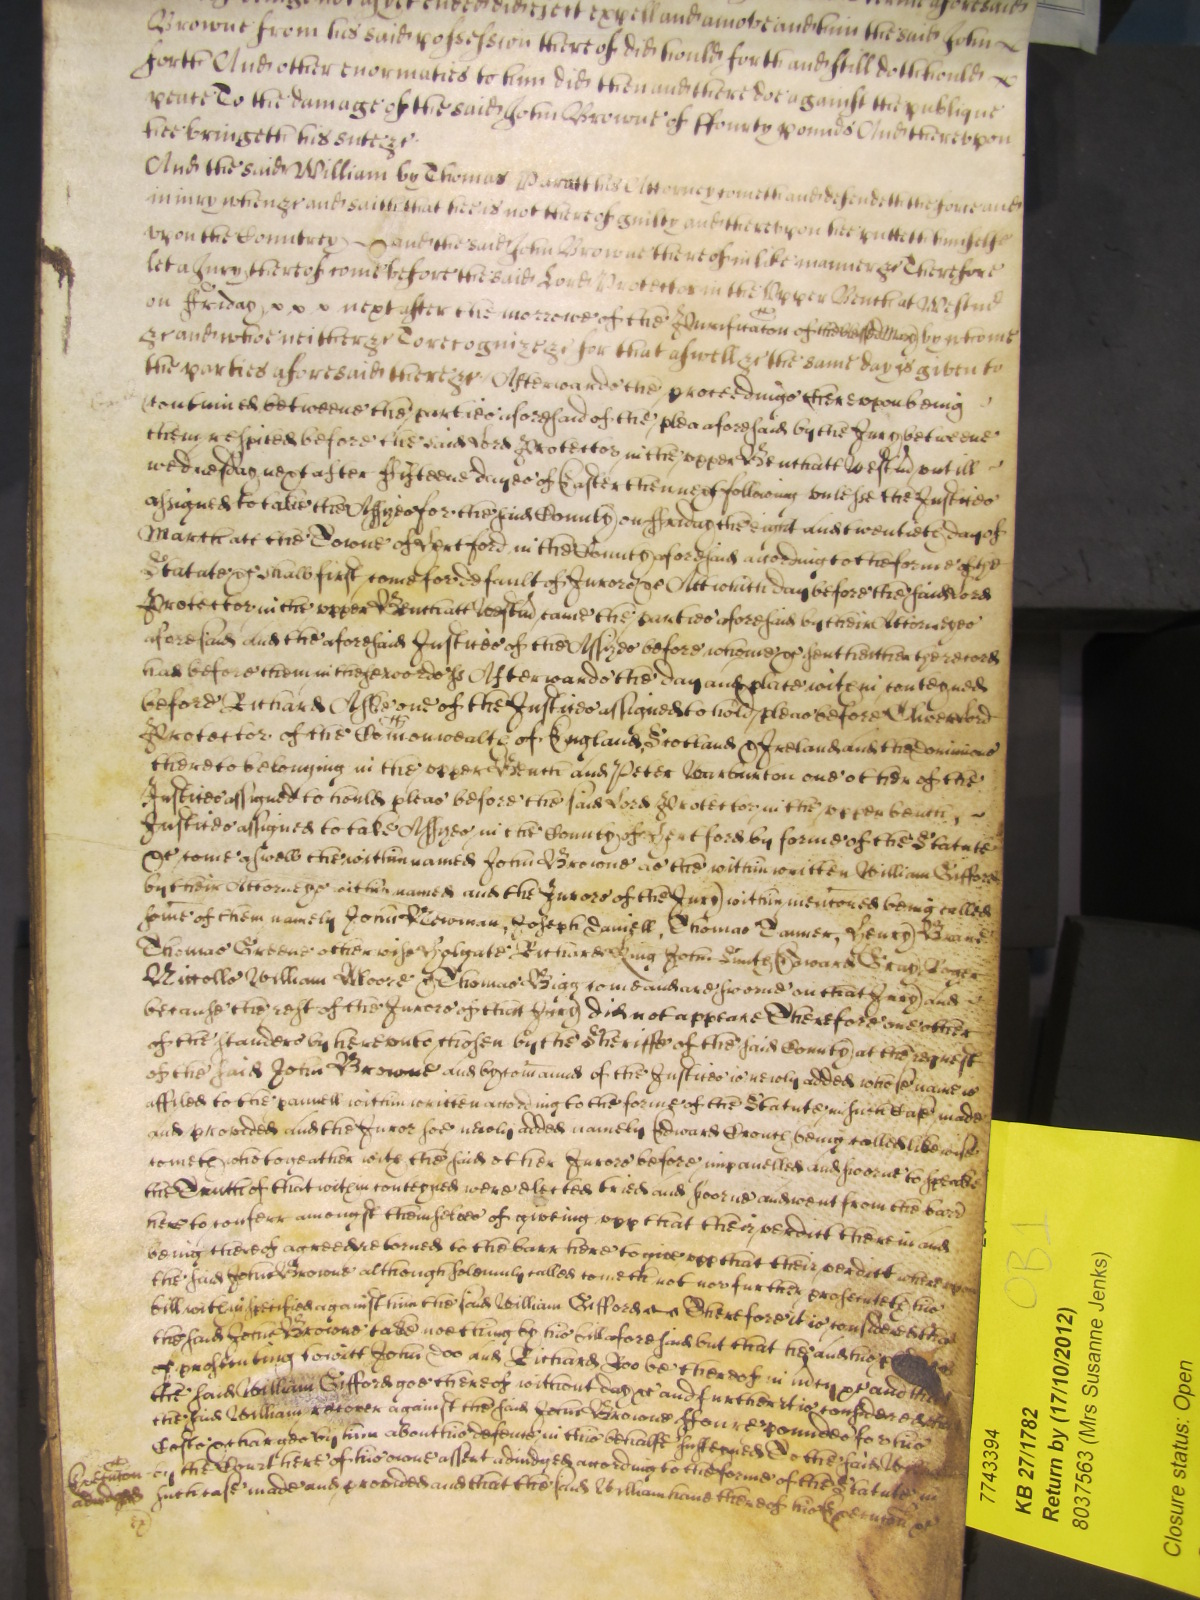 expell and amove and him the said John
Browne from his said possession thereof did hould forth and still doth hould
forth And other enormities to him did then and there doe against the publique
peace To the damage of the said John Browne of ffourty pounds And thereupon
hee bringeth his sute &c
And the said William by Thomas Paratt his Attorney cometh and defendeth the force and
iniury when &c and saith that hee is not thereof guilty and thereupon hee putteth himselfe
upon the Countrey and the said John Browne thereof in like manner &c Therefore
let a Jury thereof come before the said Lord Protector in the Upper Bench at Westmr
on Friday x x x next after the morrowe of the Purificacon of the blessed Mary by whome
&c and whoe neither &c To recognize &c for that aswell &c the same day is given to
the parties aforesaid there &c Afterwards the proceedings thereupon being
continued betweene the parties aforesaid of the plea aforesaid by the Jury betweene
them respited before the said Lord Protector in the upper Bench att Westmr untill
wednesday next after fifteene dayes of Easter then next following unlesse the Justices
assigned to take the Assizes for the said County on ffriday the eight and twentieth day of
March att the Towne of Hertford in the County aforesaid according to the forme of the
Statute &c shall first come for default of Jurors &c Att which day before the said Lord
Protector in the upper Bench att Westmr came the parties aforesaid by their Attorneyes
aforesaid and the aforesaid Justices of the Assizes before whome &c sent hither theire record
had before them in these words ss Afterwards the day and place within conteyned
before Richard Aske one of the Justices assigned to hold pleas before Oliver Lord
Protector of the Comonwealth of England Scotland & Ireland and the dominions
thereto belonging in the upper Bench and Peter Warburton one other of the
Justices assigned to hould pleas before the said Lord Protector in the upper bench
Justices assigned to take Assizes in the County of Hertford by forme of the Statute
&c come aswell the within named John Browne as the within written William Gifford
by their Attorneys within named and the Jurors of the Jury within mencioned being called
some of them namely John Newman, Joseph Daniell, Thomas Tanner, Henry
Thomas Greene otherwise Holgate Richard King John Smith Edward Gray Roger
Nicolls William Moore & Thomas Bigg come and are sworne on that Jury and
because the rest of the Jurors of that Jury did not appeare Therefore one other
of the standers by hereunto chosen by the Sheriffe of the said County at the request
of the said John Browne and by comaund of the Justices is newly added whose name is
affiled to the pannell within written according to the forme of the Statute in such case made
and provided and the Juror soe newly added namely Edward Crouch being called likewise
cometh who togeather with the said other Jurors before impanelled and sworne to speake
the Truth of that within conteyned were elected tried and sworne and went from the barr
here to conferr amongst themselves of giveing upp that their verdict therein and
being thereof agreed returned to the barr here to give upp that their verdict whereupon
the said John Browne although solemnly called cometh not nor further prosecuteth his
bill within specified against him the said William Gifford Therefore it is considered that
the said John Browne take nothing by his bill aforesaid but that he and his
of prosecuting towitt John Doo and Richard Roo be thereof in mercy &c and that
the said William Gifford goe thereof without day &c and further it is considered that
the said William recover against the said John Browne ffoure pounds for his
Costs & charges by him about his defence in this behalfe susteyned To the said William
by the Court here of his owne assent adiudged according to the forme of the Statute in
such case made and provided and that the said William have thereof his Execucon &c
Execucon
adiudged
7743394
KB 27/1782
Return by (17/10/2012)
8037563 (Mrs Susanne Jenks)
Closure status: Open
OB 1